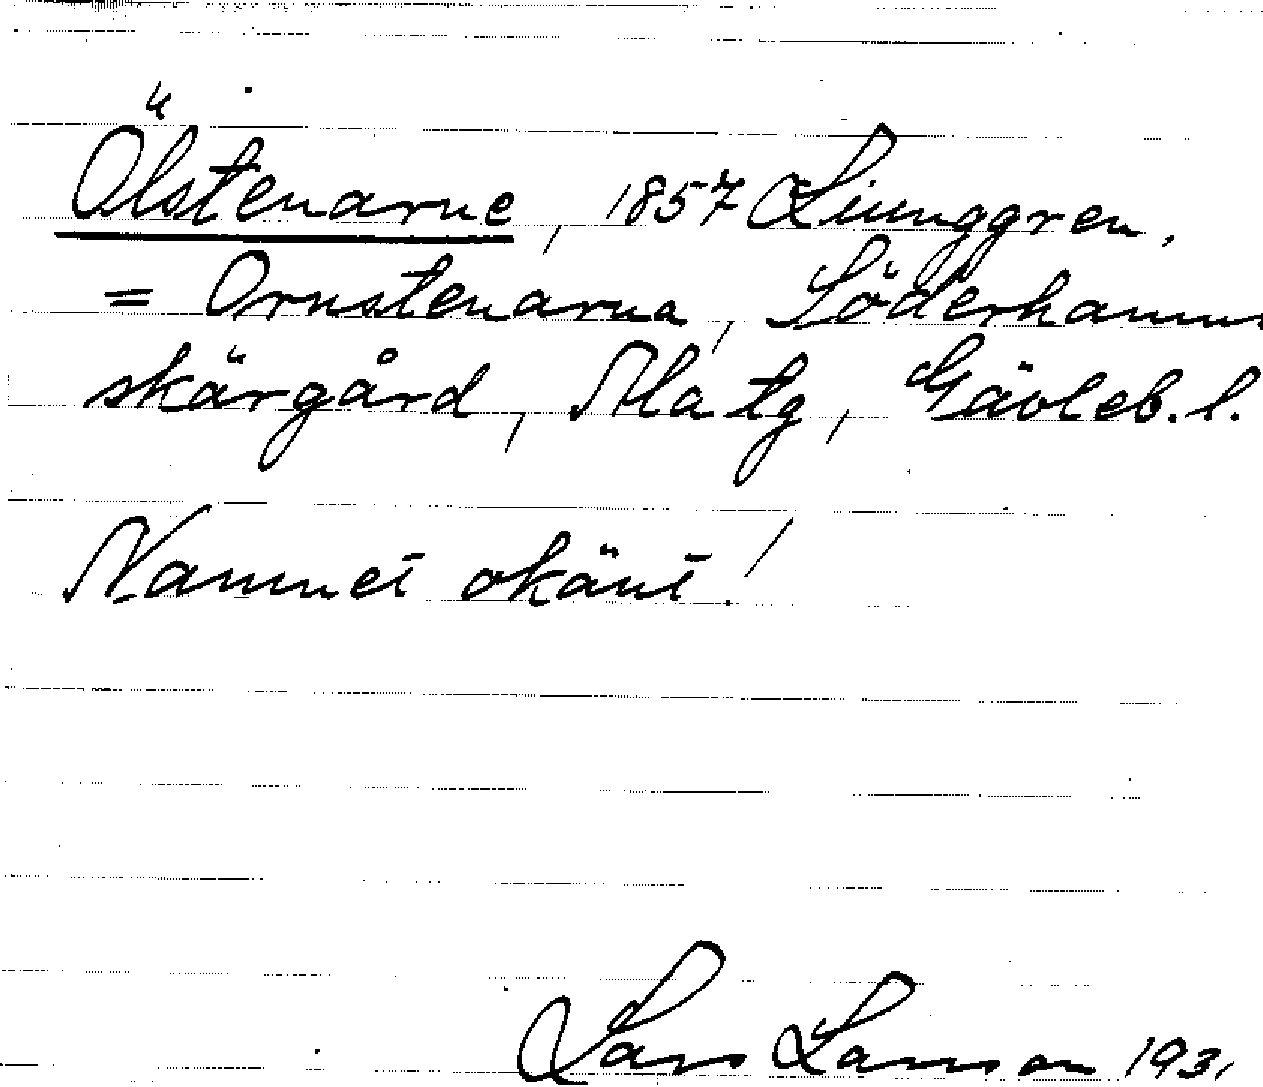 Ölstenarne, 1857 Ljunggren.
= Ornstenarna, Söderhamns
skärgård, Ala tg, Gävleb. l.
Namnet okänt!
Lars Larsson 193